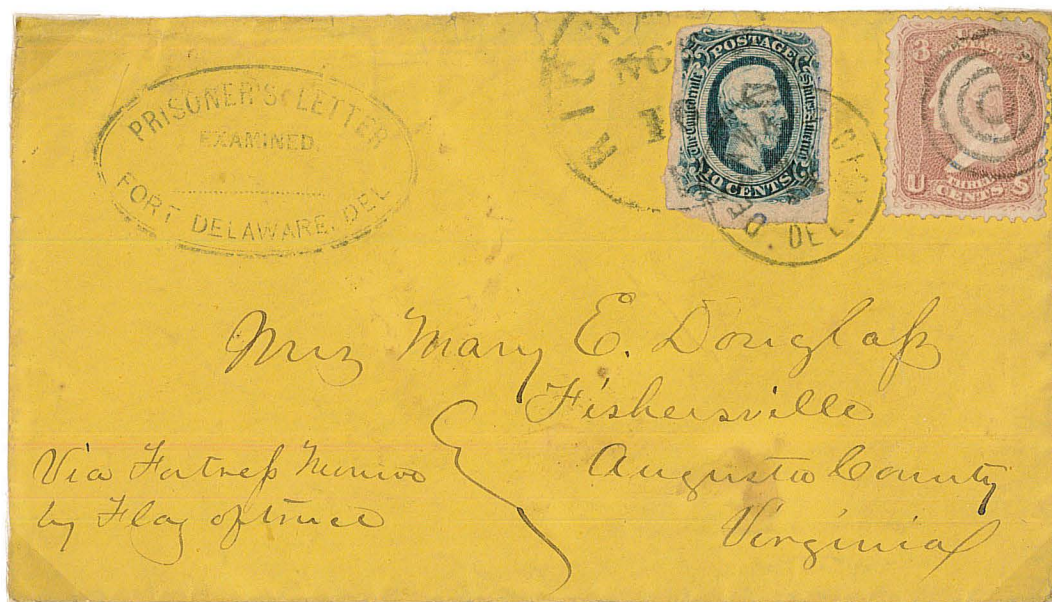 PRISONER'S LETTER
EXAMINED,
FORT DELAWARE. DEL
RICH
OCT
POSTAGE
The Confederate States of America
10 CENTS
DEL.
3
U S
CENTS
Mrs Mary E. Douglass
Fishersville
Augusta County
Virginia
Via Fortress Monroe
by Flag of truce